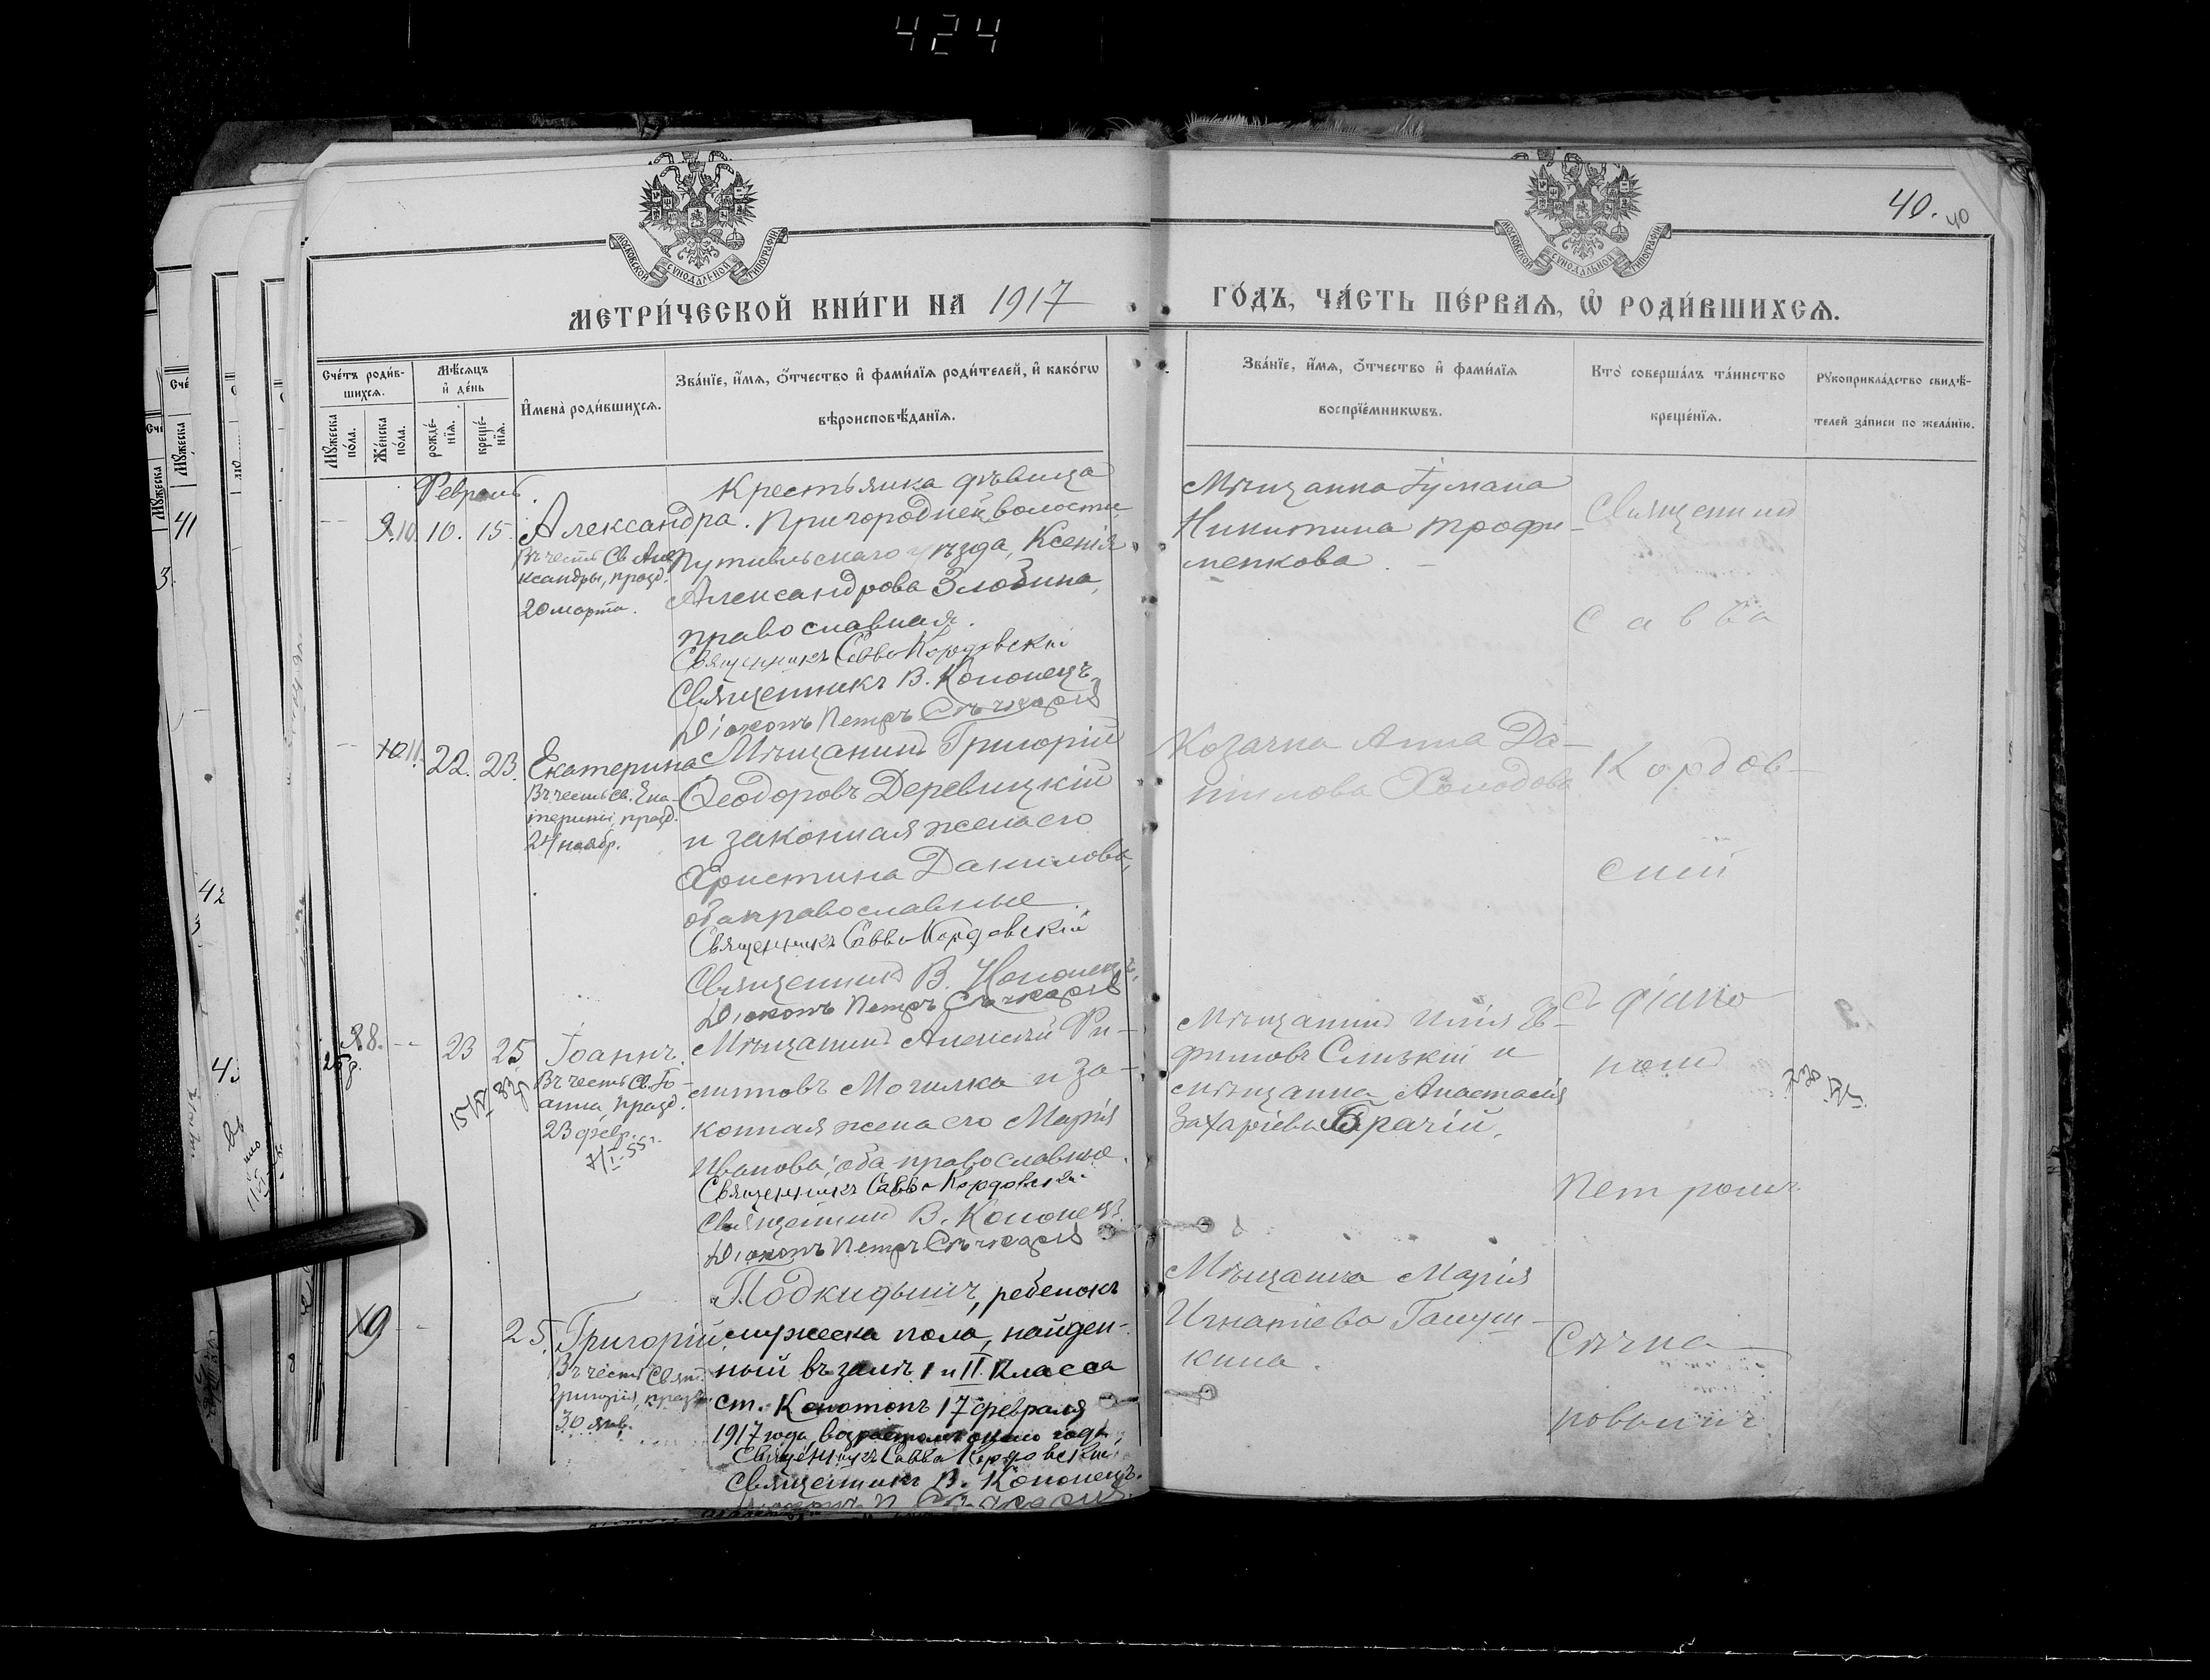 424
40.
40
МОСКОВСКОЙ СѴНОДАЛЬНОЙ ТИПОГРАФІИ
МОСКОВСКОЙ СѴНОДАЛЬНОЙ ТИПОГРАФІИ
МЕТРИ́ЧЕСКОЙ КНИ́ГИ НА 1917
ГО́ДЪ, ЧА́СТЬ ПЕ́РВАѦ, Ѡ҆ РОДИ́ВШИХСѦ.
Сче́тъ роди́в-
шихсѧ.
Мѣ́сѧцъ
и҆ де́нь
Мꙋ́жеска
по́ла.
Же́нска
по́ла.
рожде́-
нїѧ.
креще́-
нїѧ.
И҆мена̀ роди́вшихсѧ.
Зва́нїе, и҆́мѧ, о҆́тчество и҆ фами́лїѧ роди́телей, и҆ како́гѡ
вѣроисповѣ́данїѧ.
Зва́нїе, и҆́мѧ, о҆́тчество и҆ фами́лїѧ
воспрїе́мникѡвъ.
Кто̀ соверша́лъ та́инство
креще́нїѧ.
Рꙋкоприкла́дство свидѣ́-
телей за́писи по жела́нїю.
Февраль.
10. 10. 15.
Александра.
Въ честь Св. Але
ксандры, празд.
20 марта.
Крестьянка дѣвица
Пригородней волости
Путивльскаго уѣзда, Ксенія
Александрова Злобина,
православная.
Священникъ Савва Кордовскій
Священникъ В. Кононецъ
Діаконъ Петръ Сѣчкаревъ
Мѣщанка
Никитина Трофи-
менкова.
Священникъ
Савва
11. 22. 23.
Екатерина
Въ честь Св. Ека-
терины, празд.
24 ноябр.
Мѣщанинъ Григорій
Ѳеодоровъ Деревицкій
и законная жена его
Христина Данилова,
оба православные.
Священникъ Савва Кордовскій
Священникъ В. Кононецъ
Діаконъ Петръ Сѣчкаревъ
Козачка Анна Да-
нилова Холодова
Кордов-
скій
8. -- 23 25
Іоаннъ.
Въ честь Св. Іо-
анна, празд.
23 февр.
Мѣщанинъ Алексій Фи-
липповъ Могилка и за-
конная жена его Марія
Иванова, оба православные.
Священникъ Савва Кордовскій
Священникъ В. Кононецъ
Діаконъ Петръ Сѣчкаревъ
Мѣщанинъ Илія Ев-
фимовъ Слизкій и
мѣщанка Анастасія
Захаріева
съ діако
номъ
Петромъ
9 -- 25.
Григорій.
Въ честь Свят.
Григорія, празд.
30 янв.
Подкидышъ, ребенокъ
мужеска пола, найден-
ный въ залѣ I и II класса
ст. Конотопъ 17 февраля
1917 года, возрастомъ около года.
Священникъ Савва Кордовскій
Священникъ В. Кононецъ.
Мѣщанка Марія
Игнатіева Галуш-
кина.
Сѣчка-
ревымъ